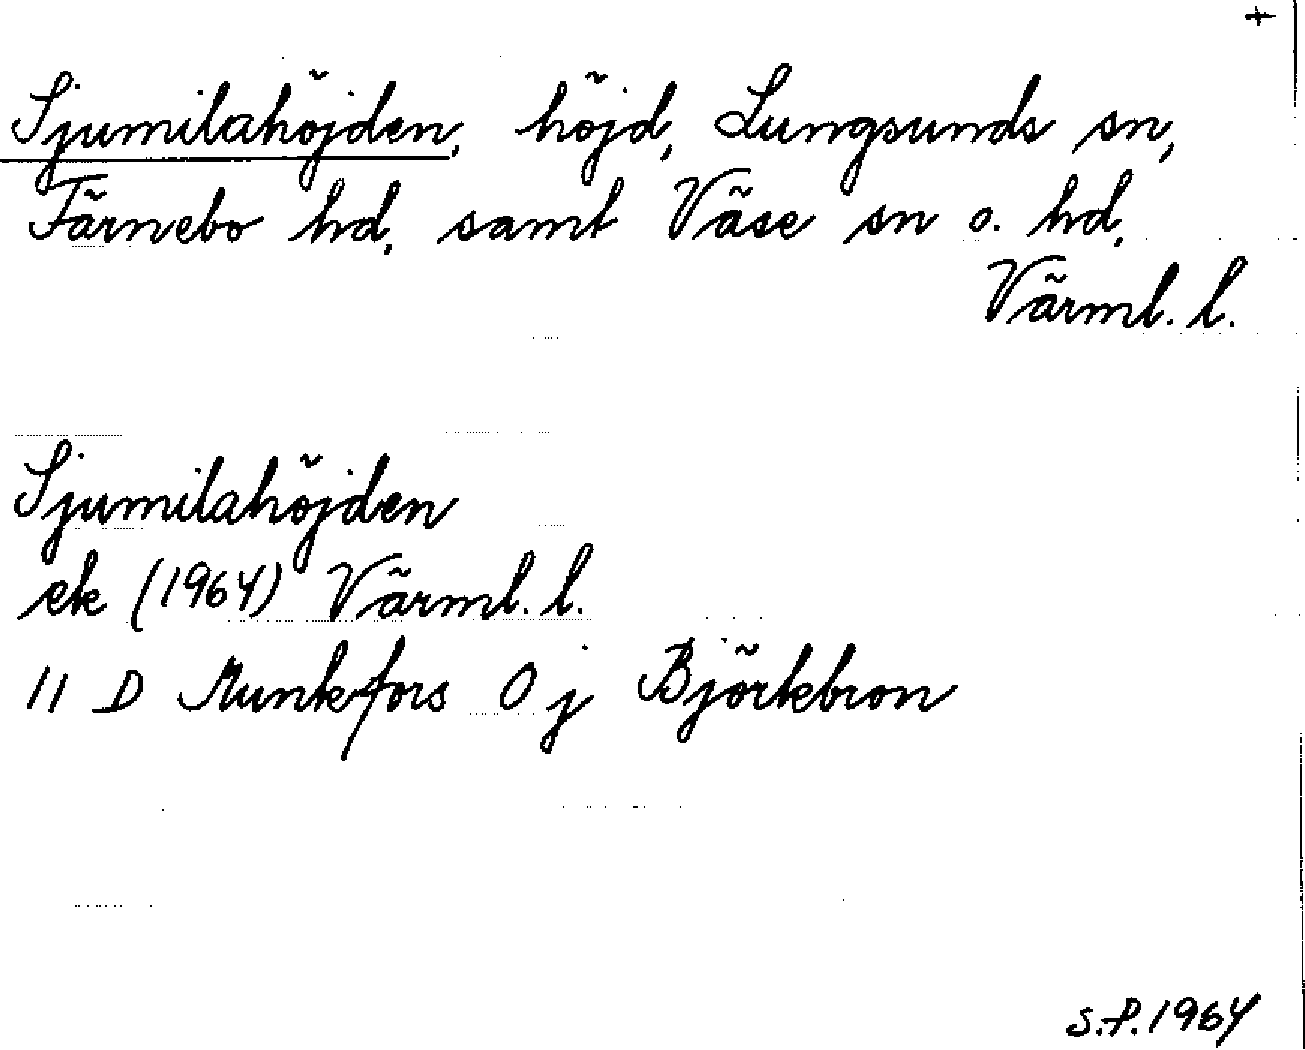 +
Sjumilahöjden, höjd, Lungsunds sn,
Färnebo hd, samt Väse sn o. hd,
Värml. l.
Sjumilahöjden
ek (1964) Värml. l.
11 D Munkfors 0 j Björkebron
S.P. 1964